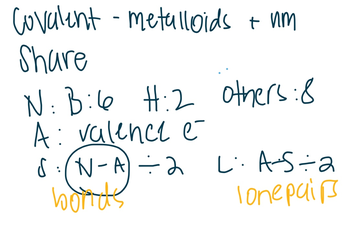 Covalent - metalloids + nm
Share
N: B:6 H:2 others:8
A: valence e⁻
S: (N-A) ÷ 2 L: A-S ÷ 2
bonds lone pairs